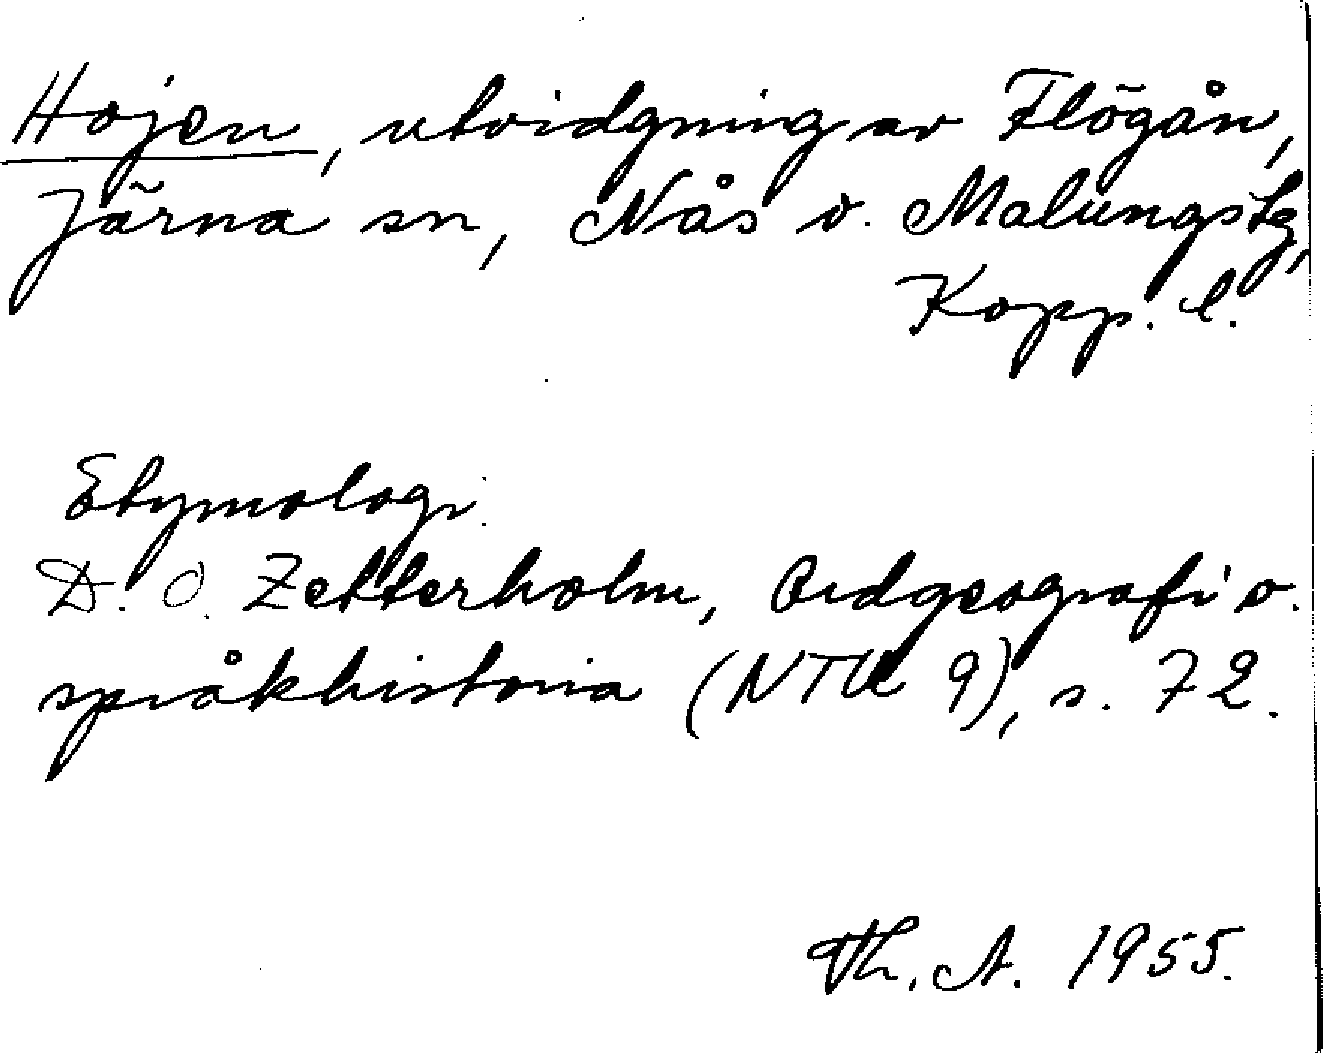 Hojen, utvidgning av Flögån,
Järna sn, Nås o. Malungs tg,
Kopp. l.
Etymologi.
D. O. Zetterholm, Ordgeografi o.
språkhistoria (NTU 9), s. 72.
Th. A. 1955.